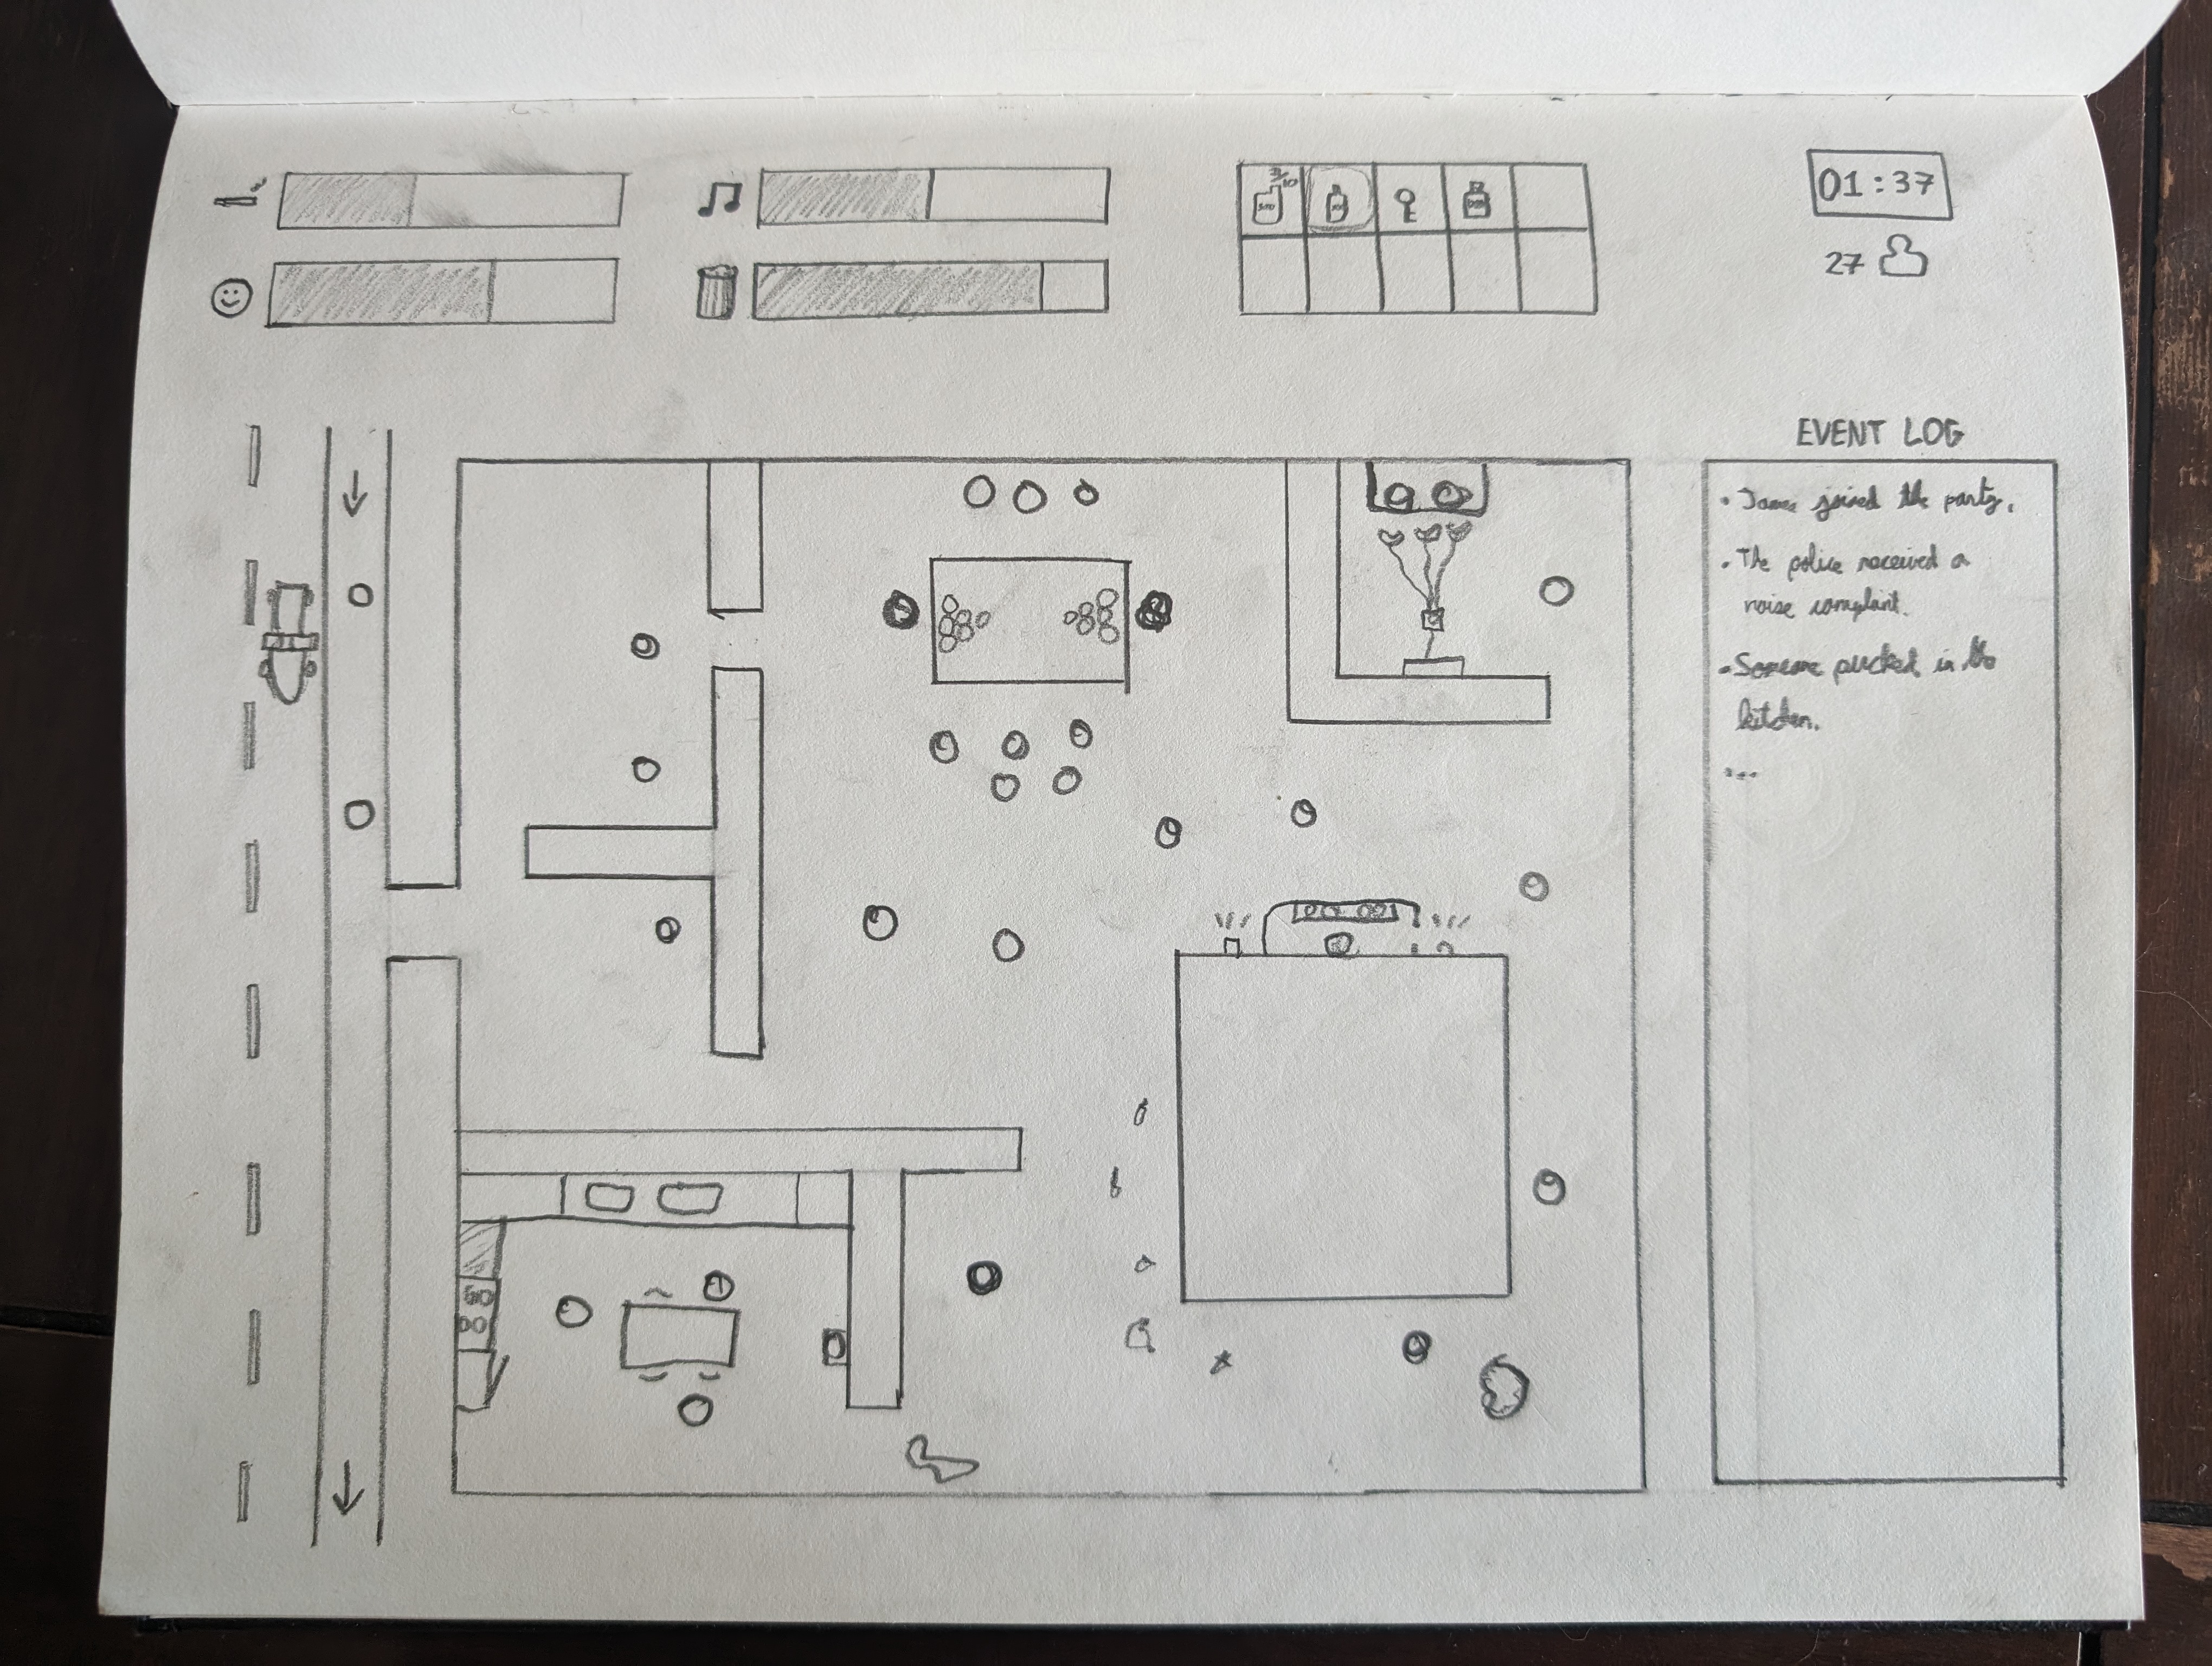 3/10
01:37
27
EVENT LOG
• James joined the party.
• The police received a
noise complaint.
• Someone pucked in the
kitchen.
...